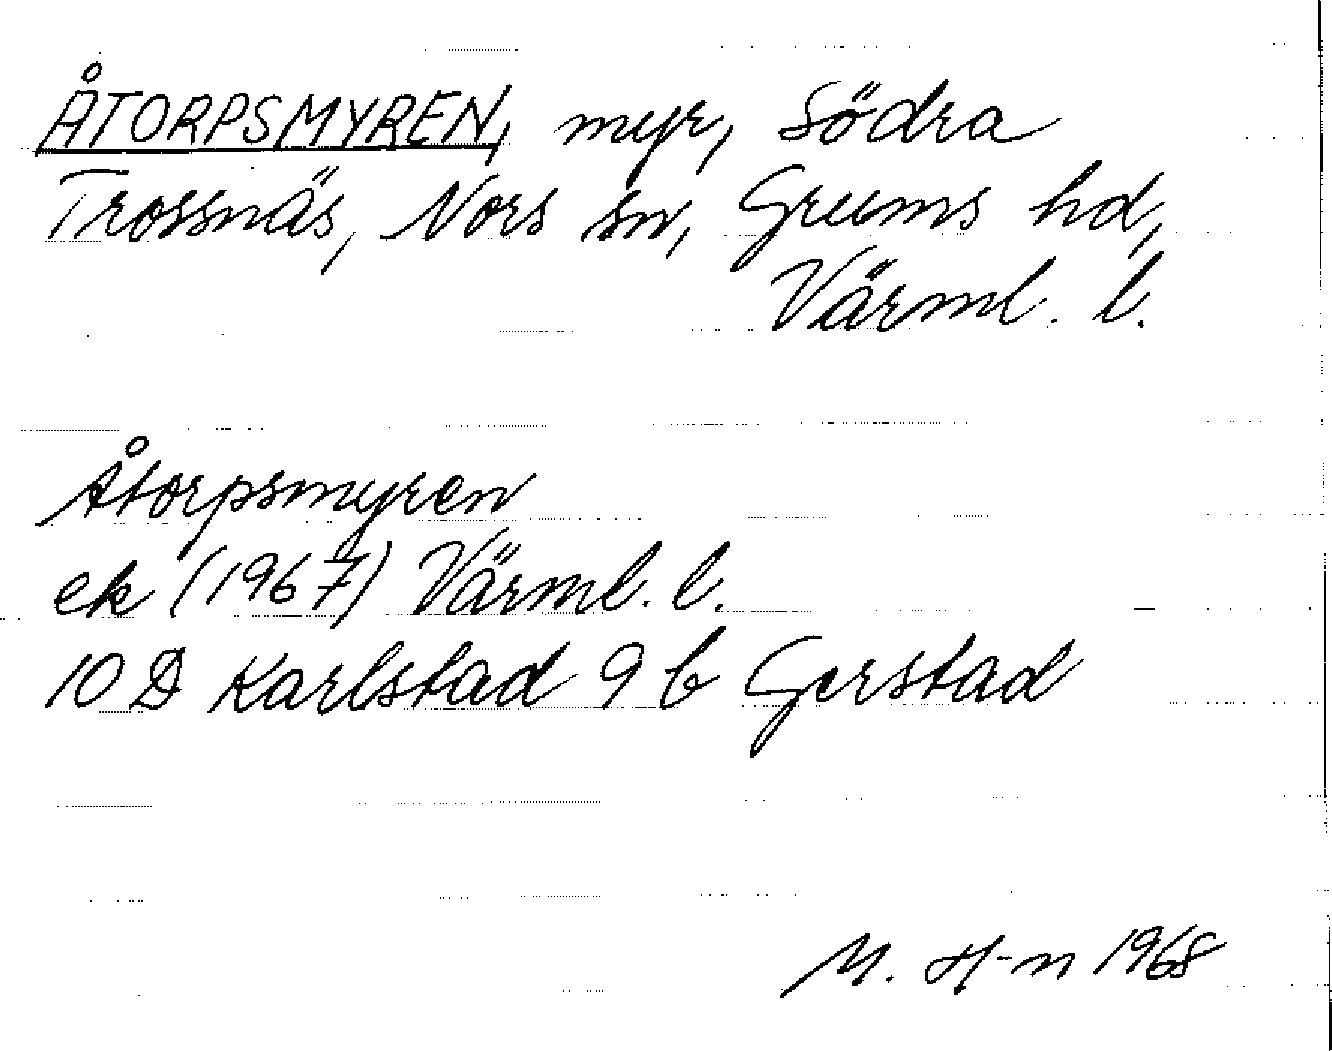 ÅTORPSMYREN, myr, Södra
Trossnäs, Nors sn, Grums hd,
Värml. l.
Åtorpsmyren
ek (1967) Värml. l.
10 D Karlstad 9 b Gerstad
M. H-n 1968